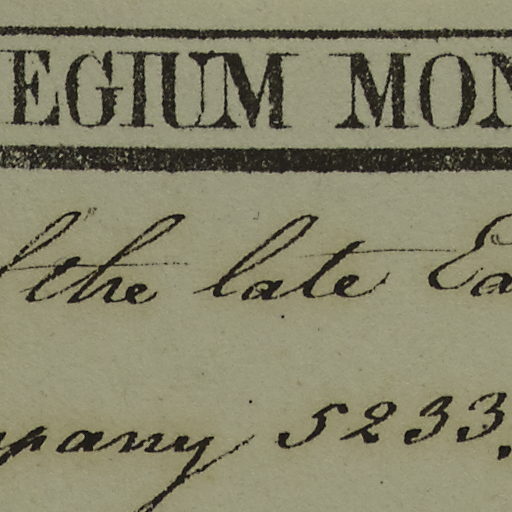 EGIUM MON
the late Ea
mpany 5233.